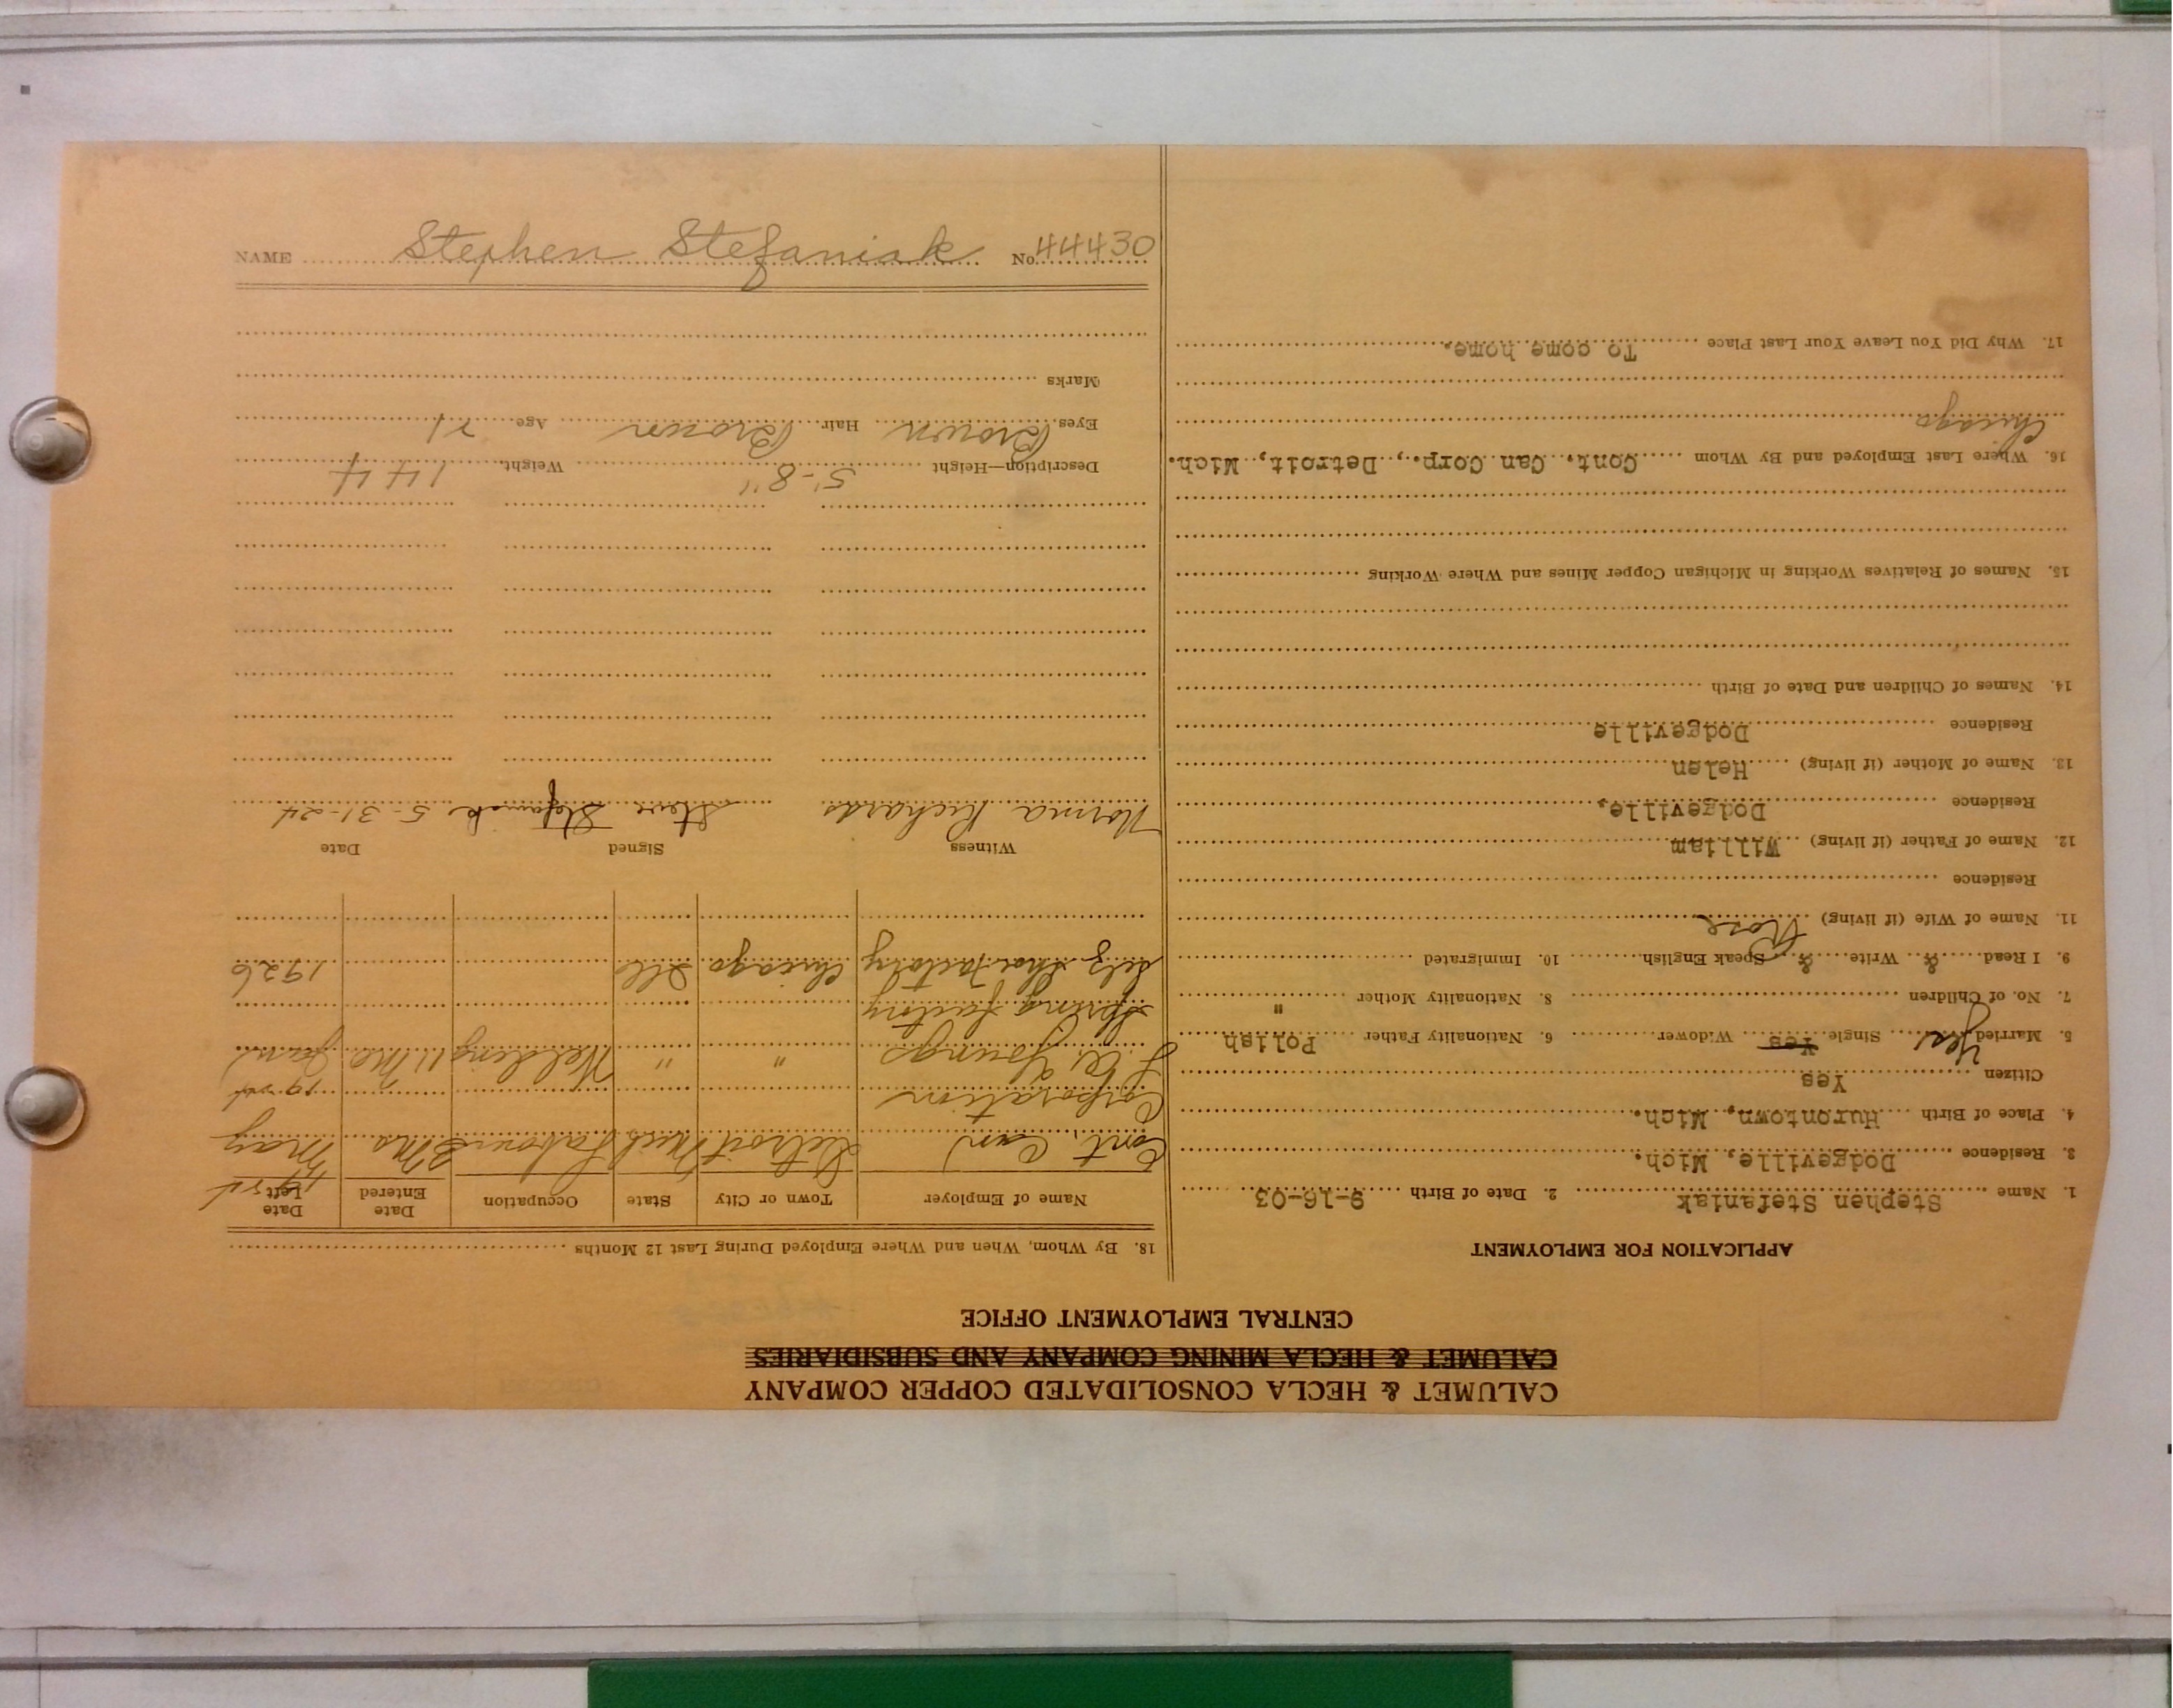 CALUMET & HECLA CONSOLIDATED COPPER COMPANY
CALUMET & HECLA MINING COMPANY AND SUBSIDIARIES
CENTRAL EMPLOYMENT OFFICE
APPLICATION FOR EMPLOYMENT
1. Name Stephen Stefaniak 2. Date of Birth 9-16-03
3. Residence Dodgeville, Mich.
4. Place of Birth Hurontown, Mich.
Citizen Yes
5. Married Yes Single Yes Widower 6. Nationality Father Polish
7. No. of Children 8. Nationality Mother "
9. I Read & Write & Speak English 10. Immigrated
11. Name of Wife (if living) Rose
Residence
12. Name of Father (if living) William
Residence Dodgeville,
13. Name of Mother (if living) Helen
Residence Dodgeville
14. Names of Children and Date of Birth
15. Names of Relatives Working in Michigan Copper Mines and Where Working
16. Where Last Employed and By Whom Cont. Can Corp., Detroit, Mich.
Chicago
17. Why Did You Leave Your Last Place To come home.
18. By Whom, When and Where Employed During Last 12 Months
Name of Employer Town or City State Occupation Date Entered Date Left
Cont. Can Detroit Mich Laborer 3 Mo May
Corporation
L. A. Youngs " " Welding 11 Mo Jan
Spring factory
Selz Shoe factory Chicago Ill 1926
Witness Signed Date
Norma Richards Steve Stefaniak 5-31-24
Description—Height 5'-8" Weight 144
Eyes Brown Hair Brown Age 21
Marks
NAME Stephen Stefaniak No. 44430